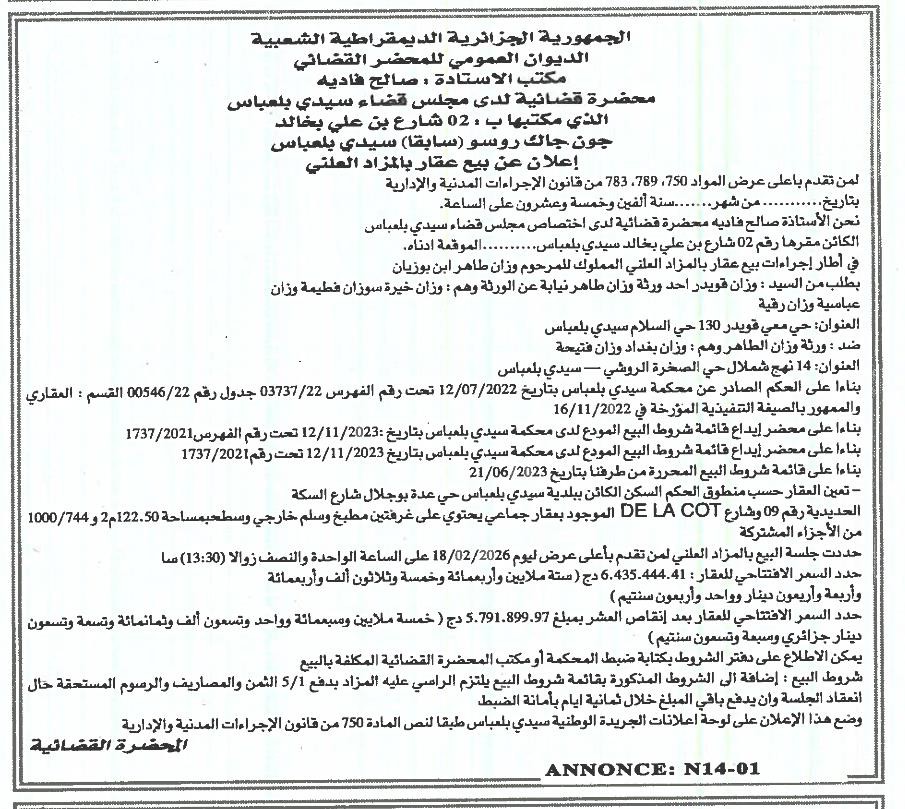 الجمهورية الجزائرية الديمقراطية الشعبية
الديوان العمومي للمحضر القضائي
مكتب الاستادة : صالح فاديه
محضرة قضائية لدى مجلس قضاء سيدي بلعباس
الذي مكتبها ب : 02 شارع بن علي بخالد
جون جاك روسو (سابقا) سيدي بلعباس
إعلان عن بيع عقار بالمزاد العلني
لمن تقدم باعلى عرض المواد 750، 789، 783 من قانون الإجراءات المدنية والإدارية
بتاريخ........... من شهر.......سنة ألفين وخمسة وعشرون على الساعة.
نحن الأستاذة صالح فاديه محضرة قضائية لدى اختصاص مجلس قضاء سيدي بلعباس
الكائن مقرها رقم 02 شارع بن علي بخالد سيدي بلعباس..........الموقعة ادناه.
في أطار إجراءات بيع عقار بالمزاد العلني المملوك للمرحوم وزان طاهر ابن بوزيان
بطلب من السيد : وزان قويدر احد ورثة وزان طاهر نيابة عن الورثة وهم : وزان خيرة سوزان فطيمة وزان
عباسية وزان رقية
العنوان: حي معي قويدر 130 حي السلام سيدي بلعباس
ضد : ورثة وزان الطاهر وهم : وزان بغداد وزان فتيحة
العنوان: 14 نهج شملال حي الصخرة الروشي – سيدي بلعباس
بناءا على الحكم الصادر عن محكمة سيدي بلعباس بتاريخ 12/07/2022 تحت رقم الفهرس 03737/22 جدول رقم 00546/22 القسم : العقاري
والممهور بالصيغة التنفيذية المؤرخة في 16/11/2022
بناءا على محضر إيداع قائمة شروط البيع المودع لدى محكمة سيدي بلعباس بتاريخ :12/11/2023 تحت رقم الفهرس1737/2021
بناءا على محضر إيداع قائمة شروط البيع المودع لدى محكمة سيدي بلعباس بتاريخ 12/11/2023 تحت رقم1737/2021
بناءا على قائمة شروط البيع المحررة من طرفنا بتاريخ 21/06/2023
- تعين العقار حسب منطوق الحكم السكن الكائن ببلدية سيدي بلعباس حي عدة بوجلال شارع السكة
الحديدية رقم 09 وشارع DE LA COT الموجود بعقار جماعي يحتوي على غرفتين مطبخ وسلم خارجي وسطحبمساحة 122.50م2 و 1000/744
من الأجزاء المشتركة
حددت جلسة البيع بالمزاد العلني لمن تقدم بأعلى عرض ليوم 18/02/2026 على الساعة الواحدة والنصف زوالا (13:30) سا
حدد السعر الافتتاحي للعقار : 6.435.444.41 دج ( ستة ملايين وأربعمائة وخمسة وثلاثون ألف وأربعمائة
وأربعة وأربعون دينار وواحد وأربعون سنتيم )
حدد السعر الافتتاحي للعقار بعد إنقاص العشر بمبلغ 5.791.899.97 دج ( خمسة ملايين وسبعمائة وواحد وتسعون ألف وثمانمائة وتسعة وتسعون
دينار جزائري وسبعة وتسعون سنتيم )
يمكن الاطلاع على دفتر الشروط بكتابة ضبط المحكمة أو مكتب المحضرة القضائية المكلفة بالبيع
شروط البيع : إضافة الى الشروط المذكورة بقائمة شروط البيع يلتزم الراسي عليه المزاد بدفع 5/1 الثمن والمصاريف والرسوم المستحقة حال
انعقاد الجلسة وان يدفع باقي المبلغ خلال ثمانية ايام بأمانة الضبط
وضع هذا الإعلان على لوحة اعلانات الجريدة الوطنية سيدي بلعباس طبقا لنص المادة 750 من قانون الإجراءات المدنية والإدارية
المحضرة القضائية
ANNONCE: N14-01